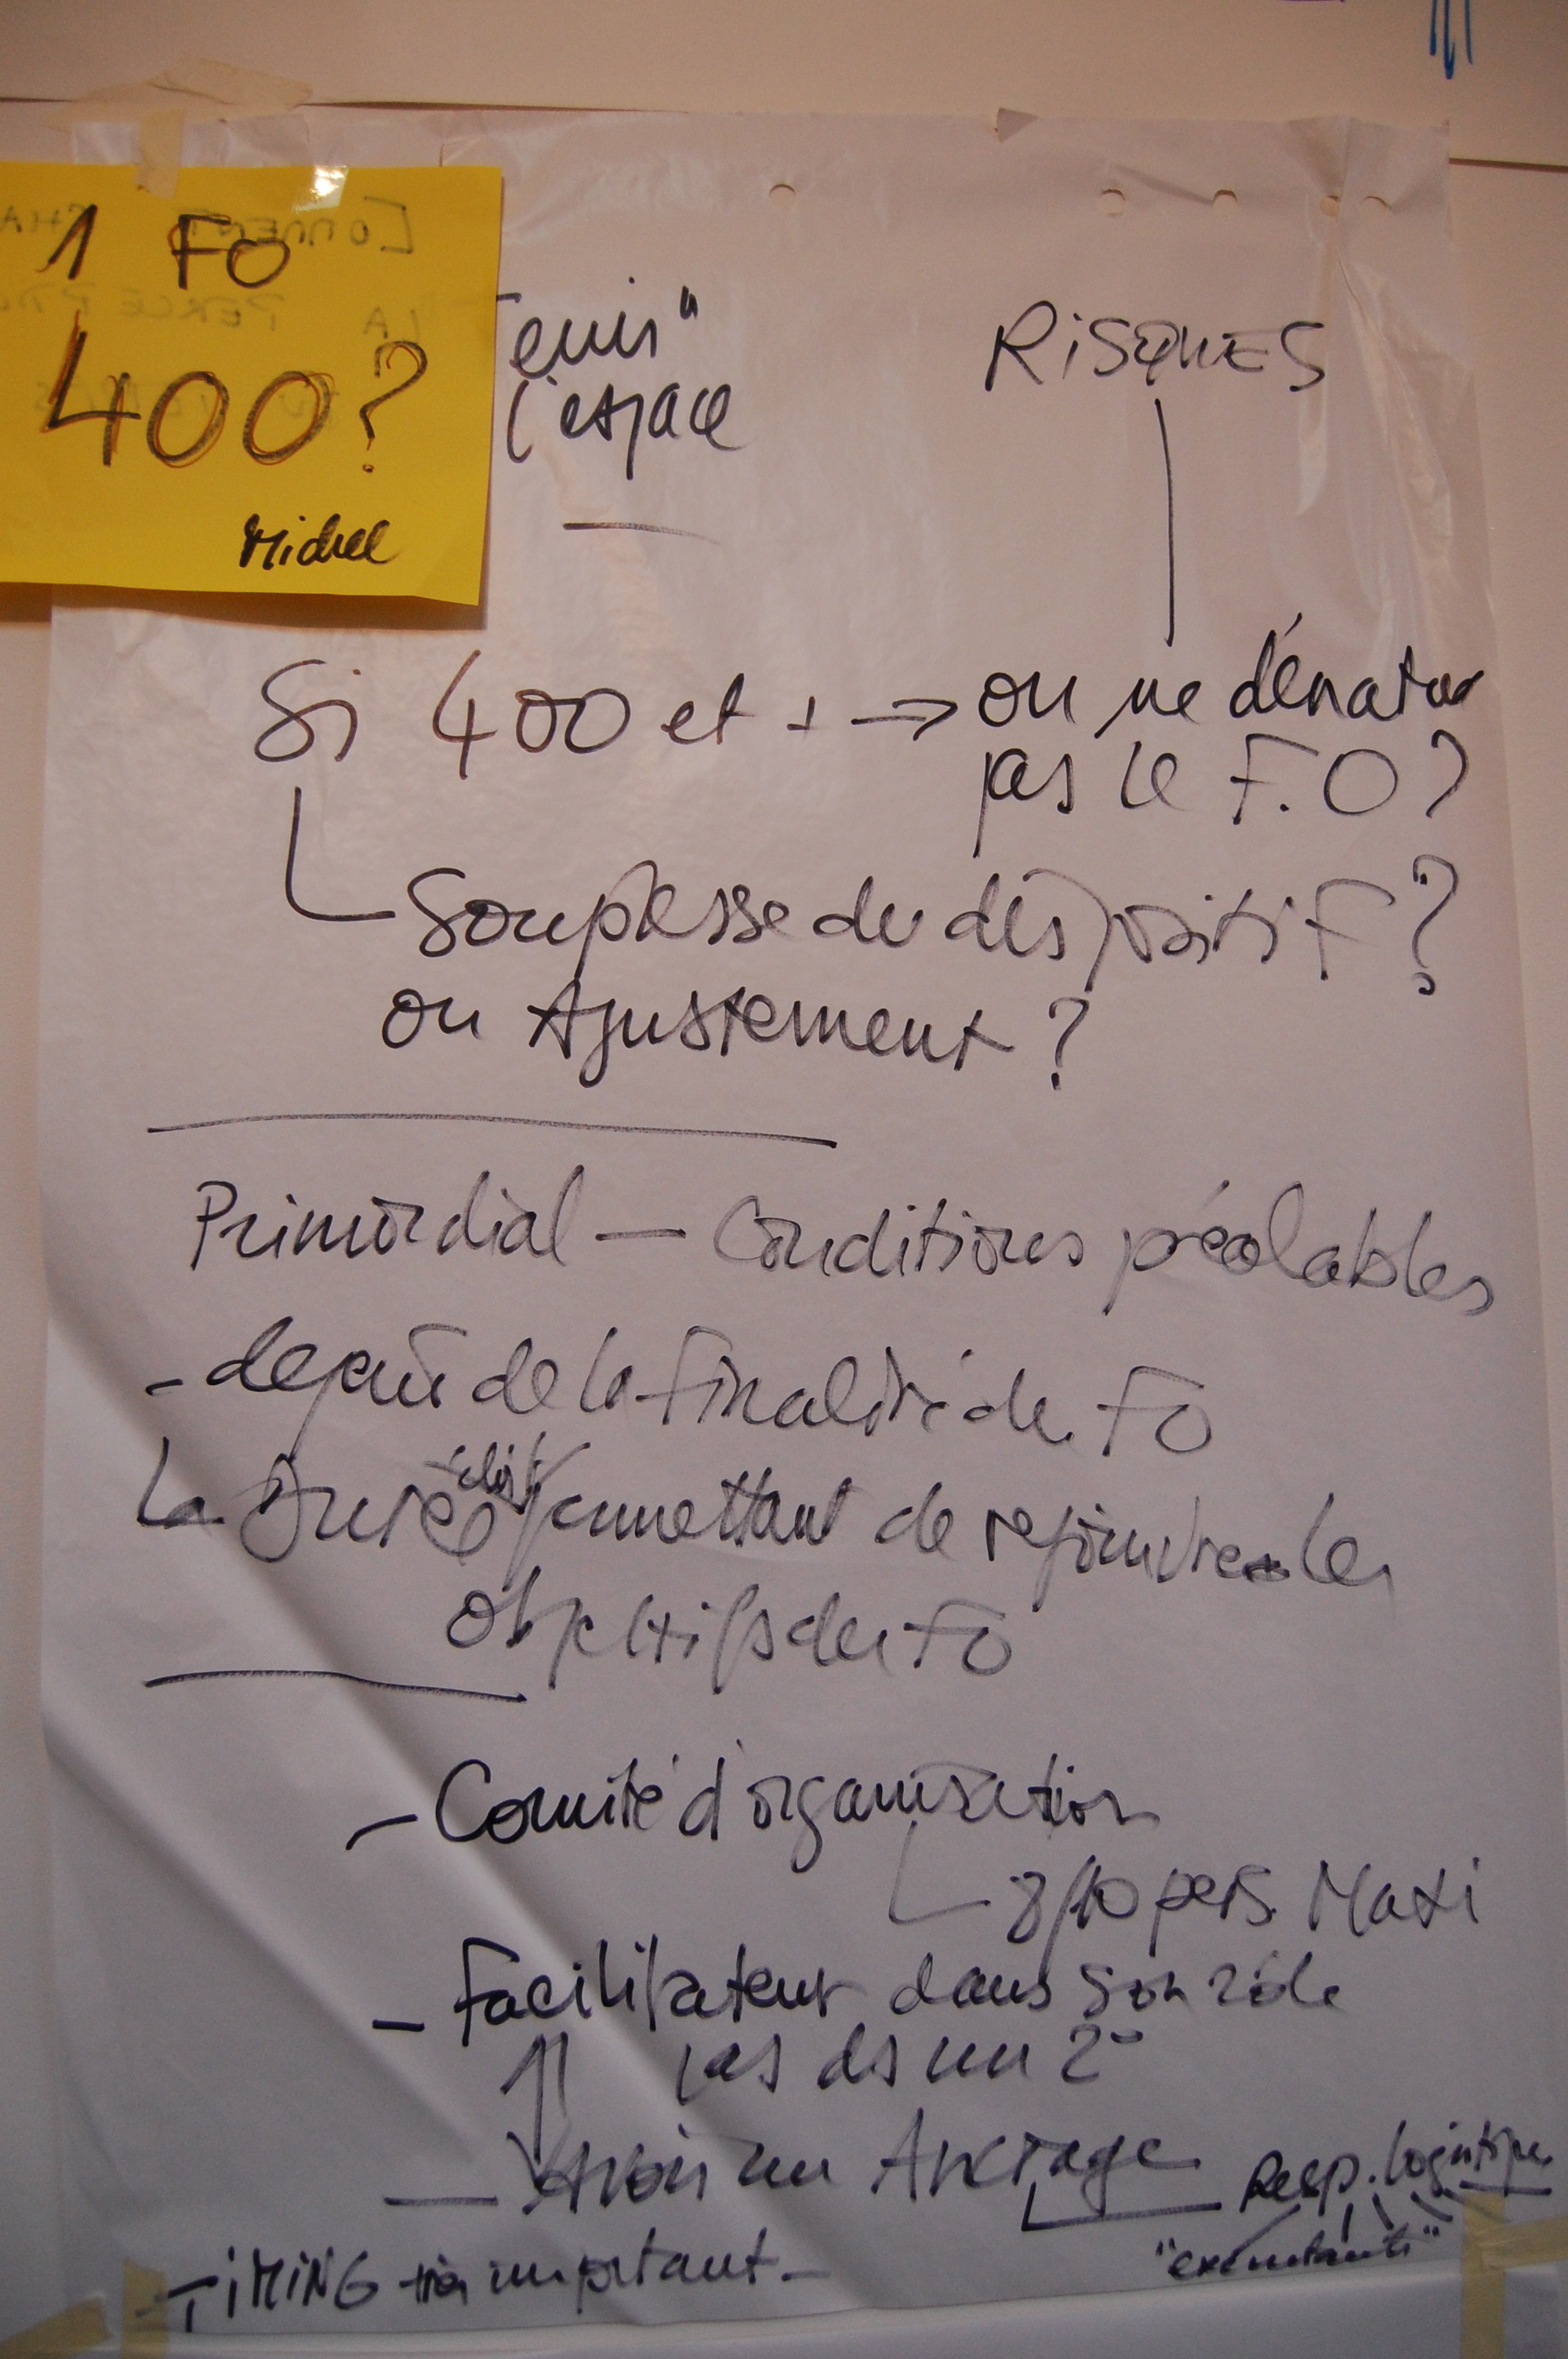 1 FO
400?
Michel
Tenir"
l'espace
RiSQUES
Si 400 et + → on ne dénature
pas le F.O?
Souplesse du dispositif?
ou Ajustement?
Primordial — Conditions préalables
- de la finalité du FO
La Durée permettant de les
objectifs du FO
- Comité d'organisation
8/10 pers. Maxi
- Facilitateur dans son rôle
pas ds un 2e
— Avoir un Ancrage
Resp. logistique
"exécutants"
- TiMiNG très important -